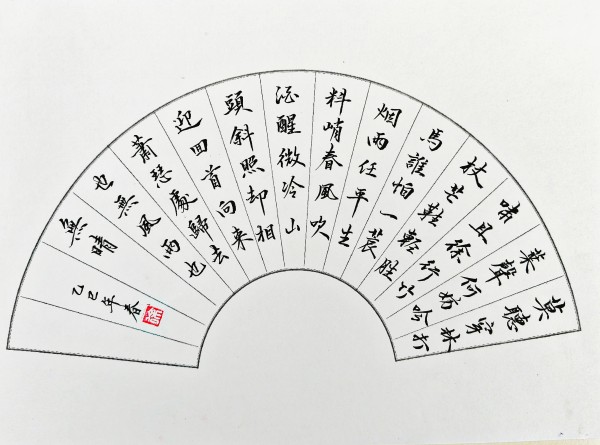 莫聽穿林打
葉聲何妨吟
嘯且徐行竹
杖芒鞋輕胜
馬誰怕一蓑
烟雨任平生
料峭春風吹
酒醒微冷山
頭斜照却相
迎回首向来
蕭瑟處歸去
也無風雨也
無晴
乙巳年春